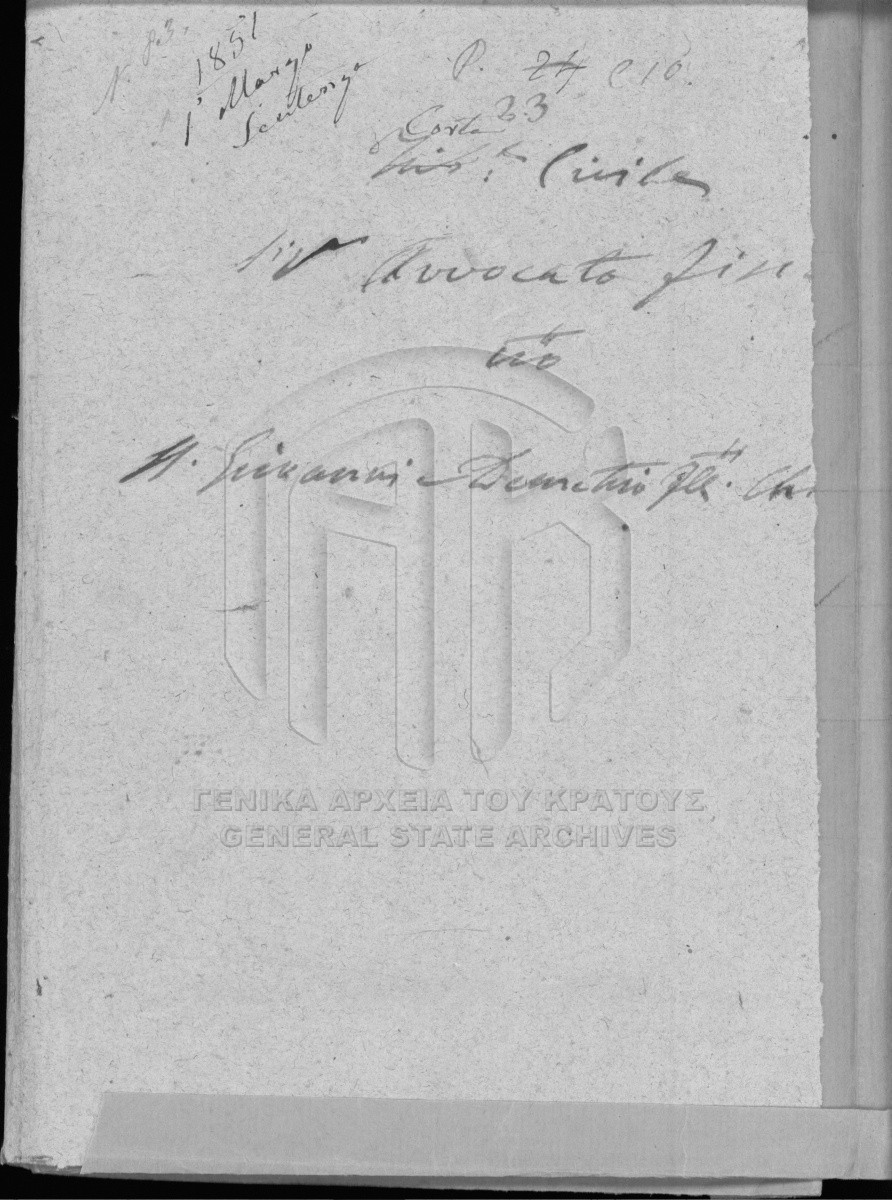 N. 83.
1851
1° Marzo
Sentenza
P. 24 C 10
23
Corte
Civile
Sigr Avvocato Fisc
N. Giovanni e Demetrio flli
ΓΕΝΙΚΑ ΑΡΧΕΙΑ ΤΟΥ ΚΡΑΤΟΥΣ
GENERAL STATE ARCHIVES